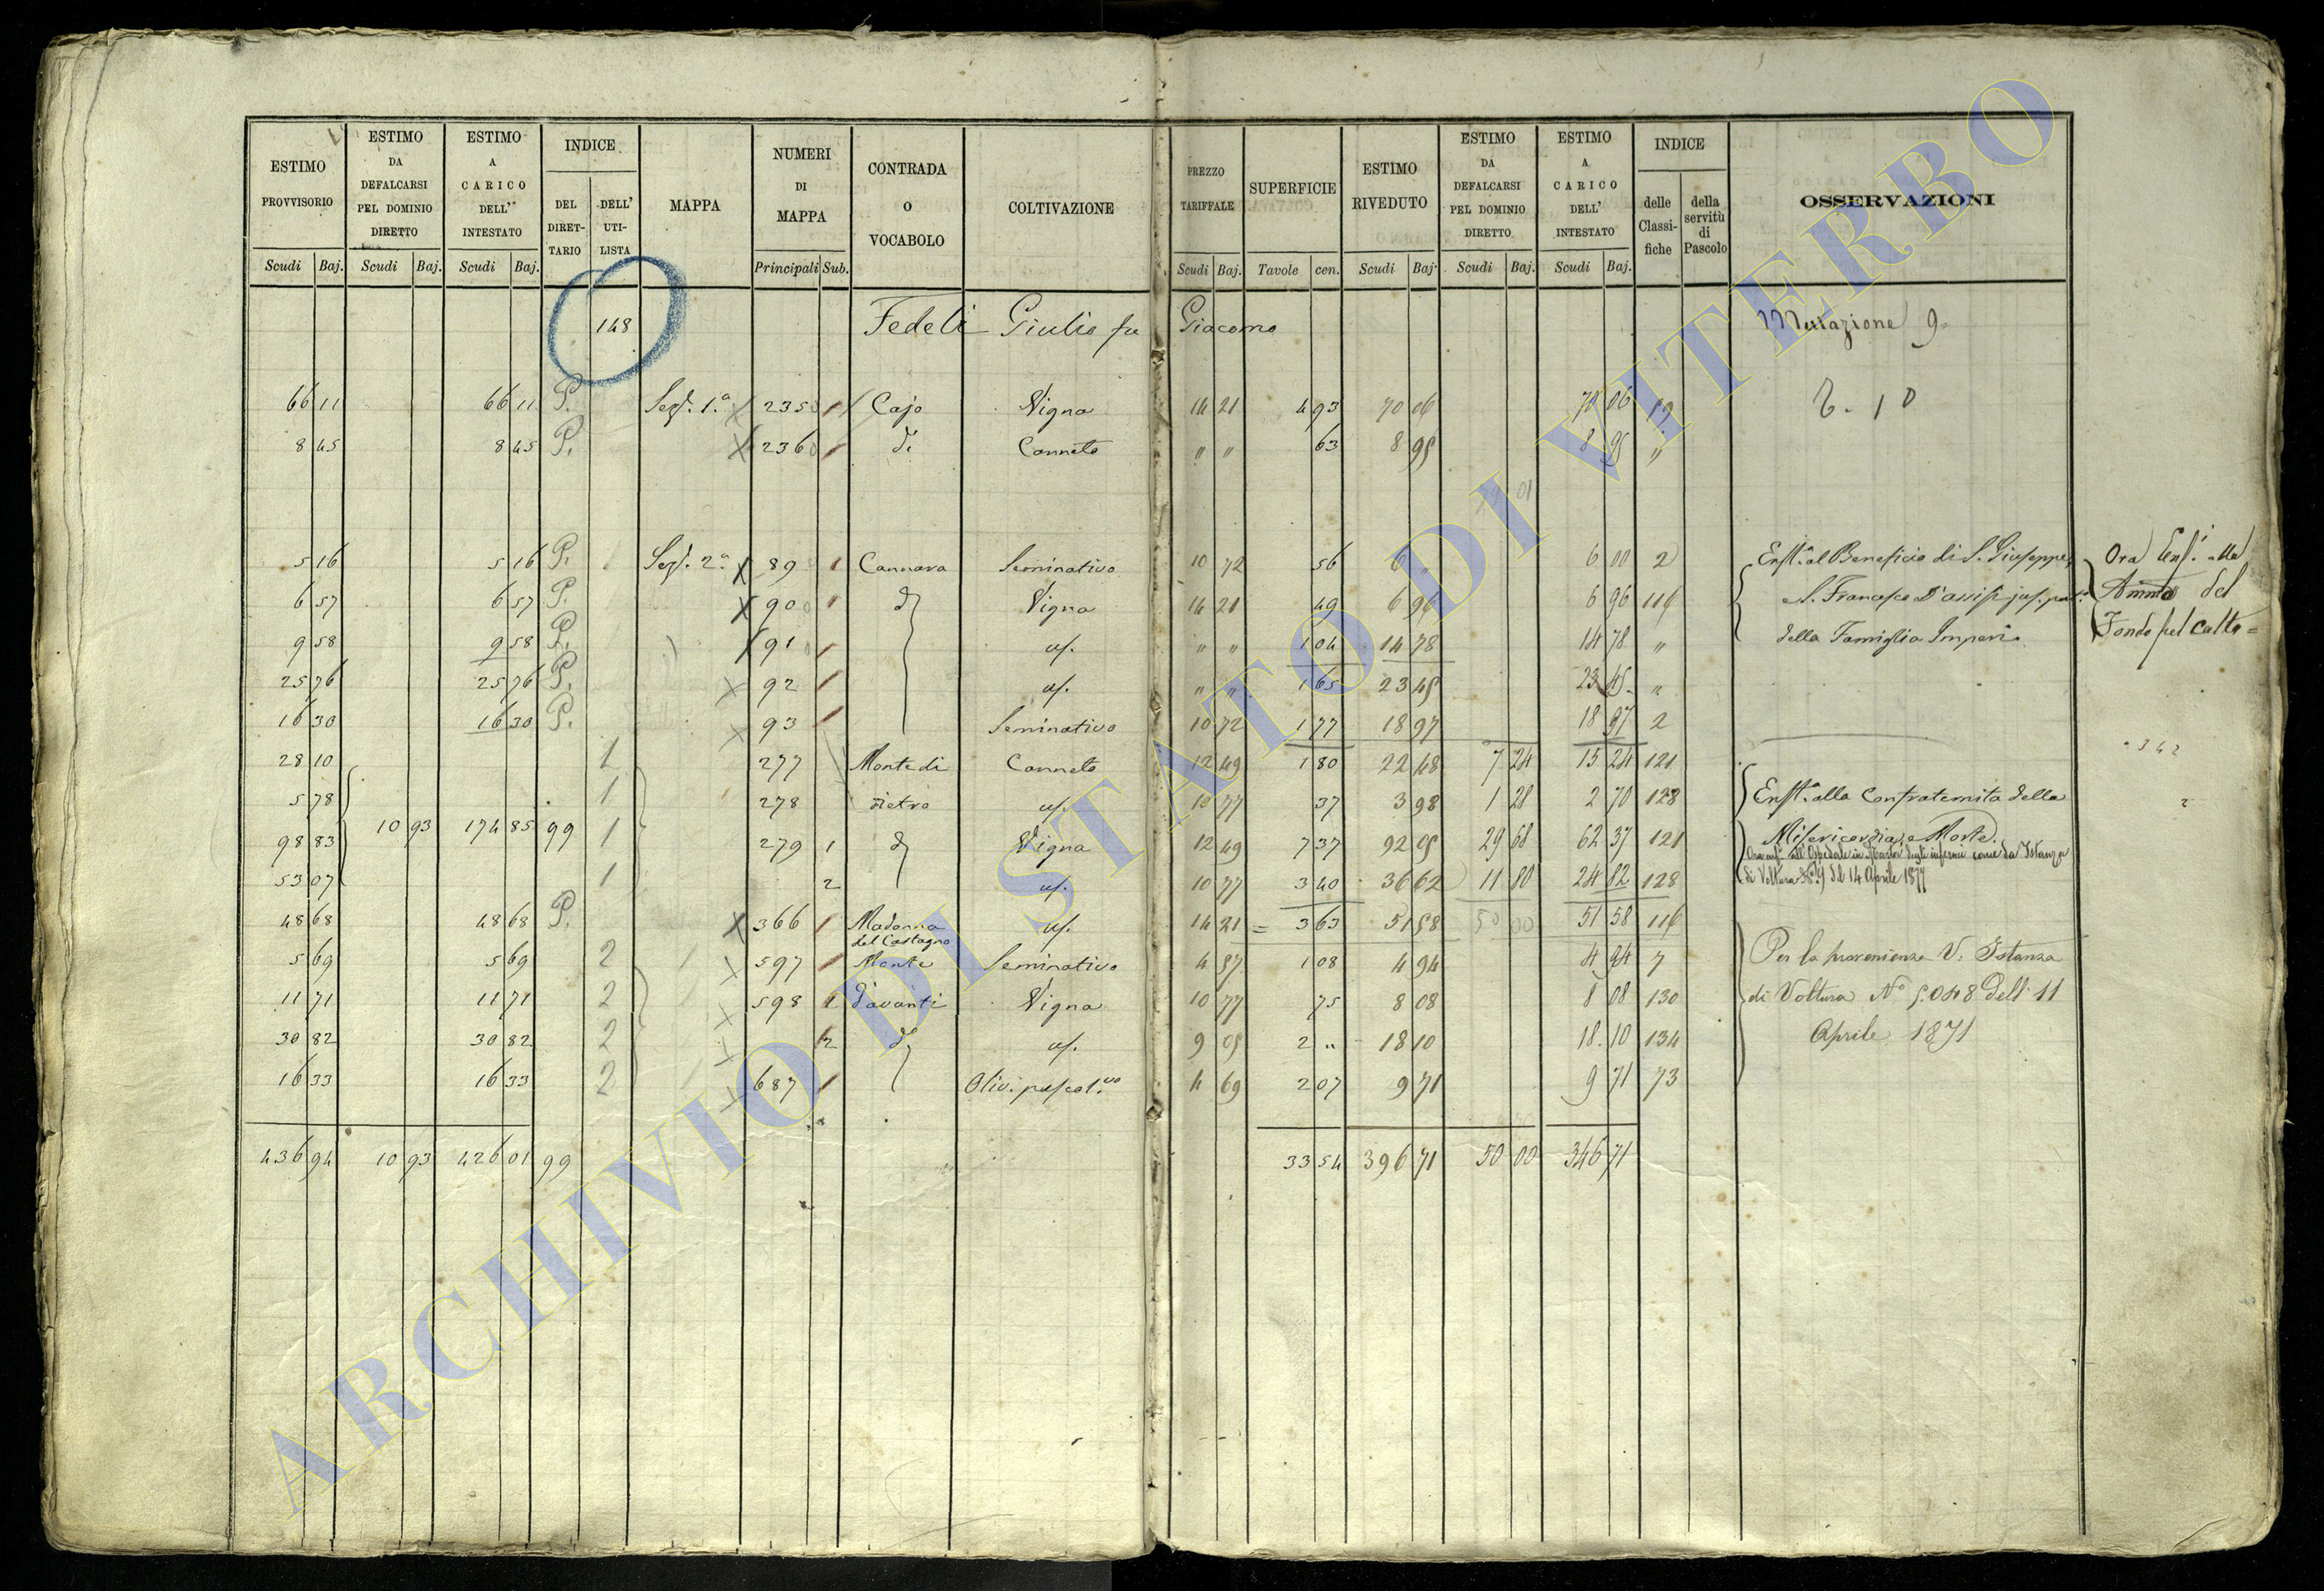 ESTIMO PROVVISORIO | ESTIMO DA DEFALCARSI PEL DOMINIO DIRETTO | ESTIMO A CARICO DELL' INTESTATO | INDICE DEL DIRET-TARIO | DELL' UTI-LISTA | MAPPA | NUMERI DI MAPPA | CONTRADA O VOCABOLO | COLTIVAZIONE | PREZZO TARIFFALE | SUPERFICIE | ESTIMO RIVEDUTO | ESTIMO DA DEFALCARSI PEL DOMINIO DIRETTO | ESTIMO A CARICO DELL' INTESTATO | INDICE delle Classi-fiche | della servitù di Pascolo | OSSERVAZIONI
Scudi Baj. | Scudi Baj. | Scudi Baj. | Principali Sub. | Scudi Baj. | Tavole cen. | Scudi Baj. | Scudi Baj. | Scudi Baj.
148 Fedeli Giulio fu Giacomo Mutazione 9
66 11 | 66 11 | P. | Sez. 1.a | 235 | 1 | Cajo | Vigna | 14 21 | 4 93 | 70 06 | 70 06
8 45 | 8 45 | P. | 236 | 1 | di | Canneto | " " | 63 | 8 95 | 8 95 | "
79 01
5 16 | 5 16 | P. | Sez. 2.a | 89 | 1 | Cannara | Seminativo | 10 72 | 56 | 6 " | 6 00 | 2 | Enft.a al Beneficio di S. Giuseppe, | Ora Enf. alla
6 57 | 6 57 | P. | 90 | 1 | d | Vigna | 14 21 | 49 | 6 96 | 6 96 | 116 | e S. Francesco D'assisi jus. pat. | Ammne del
9 58 | 9 58 | P. | 91 | 1 | uf. | " " | 1 04 | 14 78 | 14 78 | " | della Famiglia Imperi | Fondo pel Culto =
25 76 | 25 76 | P. | 92 | 1 | uf. | " " | 1 65 | 23 45 | 23 45 | "
16 30 | 16 30 | P. | 93 | 1 | Seminativo | 10 72 | 1 77 | 18 97 | 18 97 | 2
28 10 | 1 | 277 | Monte di | Canneto | 12 49 | 1 80 | 22 48 | 7 24 | 15 24 | 121
5 78 | 1 | 278 | Pietro | uf. | 10 77 | 37 | 3 98 | 1 28 | 2 70 | 128 | Enft.a alla Confraternita della
98 83 | 10 93 | 174 85 | 99 | 1 | 279 | 1 | d | Vigna | 12 49 | 7 37 | 92 05 | 29 68 | 62 37 | 121 | Misericordia, e Morte.
Ora enf. all'Ospedale in Nardò degli infermi come da Istanza
53 07 | 1 | 2 | uf. | 10 77 | 3 40 | 36 62 | 11 80 | 24 82 | 128 | di Voltura N.9 del 14 Aprile 1877
48 68 | 48 68 | P. | 366 | 1 | Madonna del Castagno | uf. | 14 21 | 3 63 | 51 58 | 50 00 | 51 58 | 116
5 69 | 5 69 | 2 | 597 | 1 | Monte | Seminativo | 4 57 | 1 08 | 4 94 | 4 94 | 7 | Per la provenienza V. Istanza
11 71 | 11 71 | 2 | 598 | 1 | d'avanti | Vigna | 10 77 | 75 | 8 08 | 8 08 | 130 | di Voltura No 5.048 dell' 11
30 82 | 30 82 | 2 | 2 | do | uf. | 9 05 | 2 " | 18 10 | 18.10 | 134 | Aprile 1871
16 33 | 16 33 | 2 | 687 | 1 | Oliv. pascol.vo | 4 69 | 2 07 | 9 71 | 9 71 | 73
436 94 | 10 93 | 426 01 | 99 | 33 54 | 396 71 | 50 00 | 346 71
ARCHIVIO DI STATO DI VITERBO